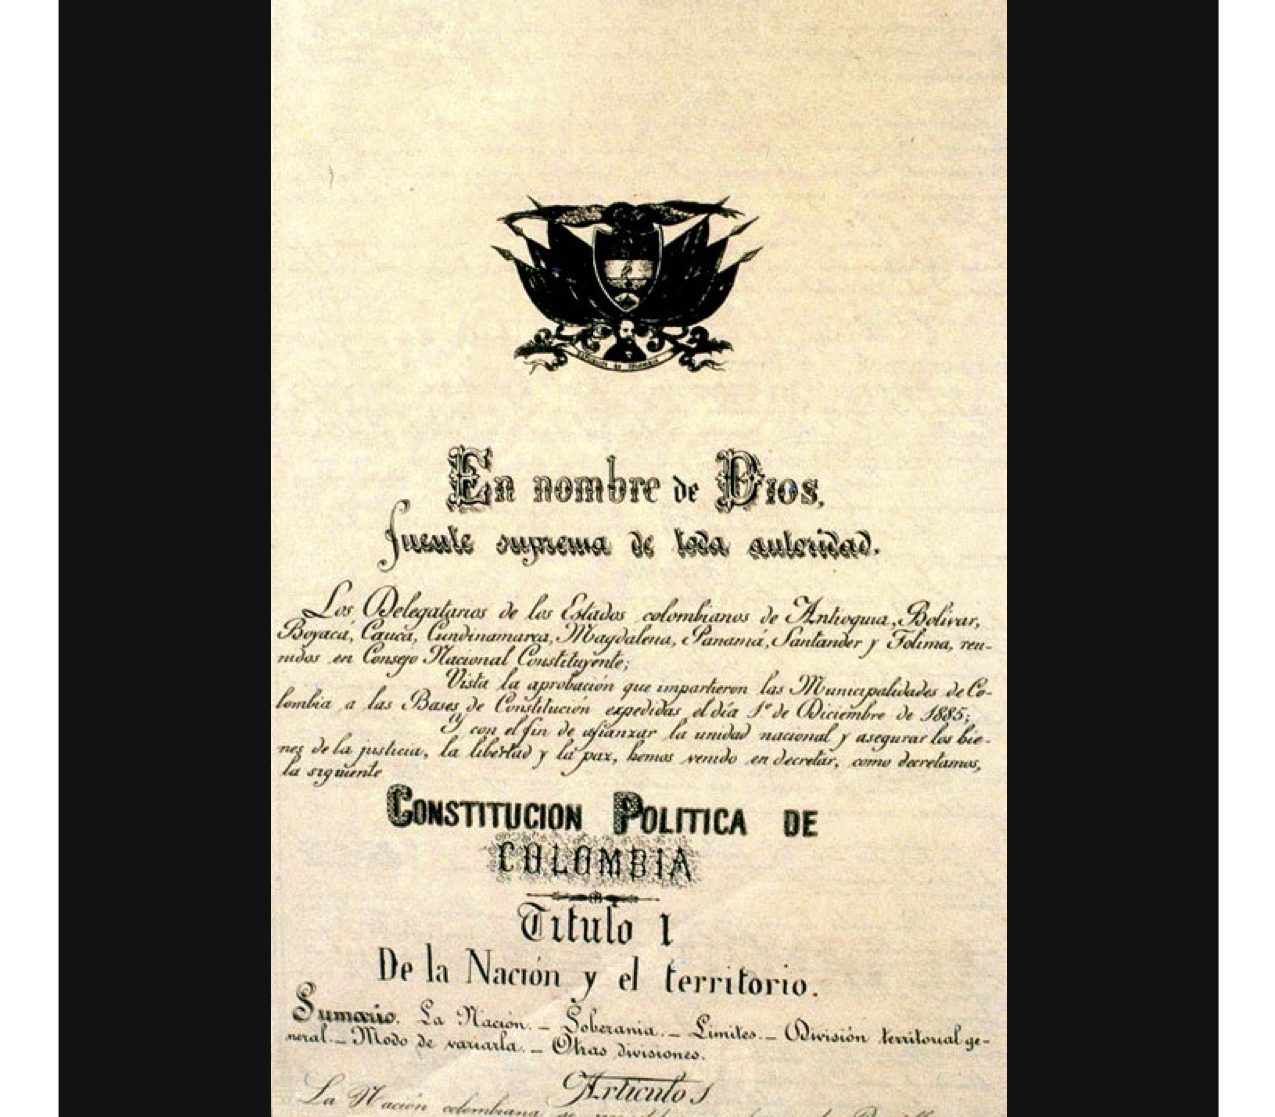 En nombre de Dios,
fuente suprema de toda autoridad.
Los Delegatarios de los Estados colombianos de Antioquia, Bolívar,
Boyacá, Cauca, Cundinamarca, Magdalena, Panamá, Santander y Tolima, reu-
nidos en Consejo Nacional Constituyente;
Vista la aprobación que impartieron las Municipalidades de Co-
lombia a las Bases de Constitución expedidas el día 1º de Diciembre de 1885;
Y con el fin de afianzar la unidad nacional y asegurar los bie-
nes de la justicia, la libertad y la paz, hemos venido en decretar, como decretamos,
la siguiente
CONSTITUCION POLITICA DE
COLOMBIA
Titulo I
De la Nación y el territorio.
Sumario. La Nación. – Soberanía. – Límites. – División territorial ge-
neral. – Modo de variarla. – Otras divisiones.
Artículo 1
La Nación colombiana se